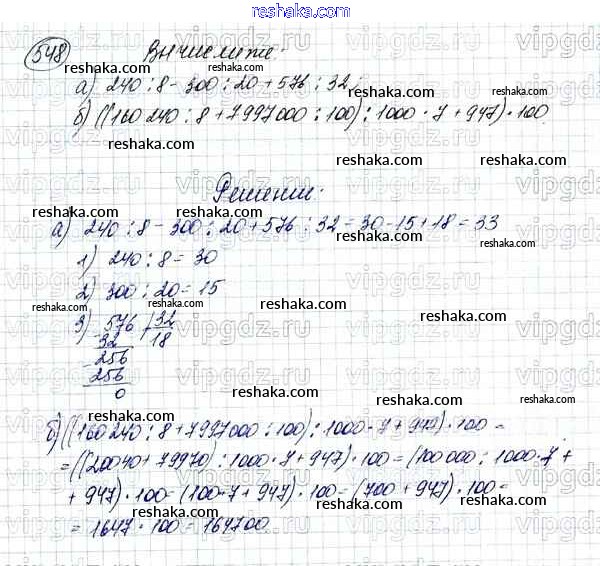 reshaka.com
548 Вычислите:
а) 240 : 8 - 300 : 20 + 576 : 32;
б) ((160240 : 8 + 7997000 : 100) : 1000 · 7 + 947) · 100.
Решение:
а) 240 : 8 - 300 : 20 + 576 : 32 = 30 - 15 + 18 = 33
1) 240 : 8 = 30
2) 300 : 20 = 15
3) 576 | 32
- 32 18
- 256
256
0
б) ((160240 : 8 + 7997000 : 100) : 1000 · 7 + 947) · 100 =
= ((20040 + 79970) : 1000 · 7 + 947) · 100 = (100000 : 1000 · 7 +
+ 947) · 100 = (100 · 7 + 947) · 100 = (700 + 947) · 100 =
= 1647 · 100 = 164700
reshaka.com
vipgdz.ru